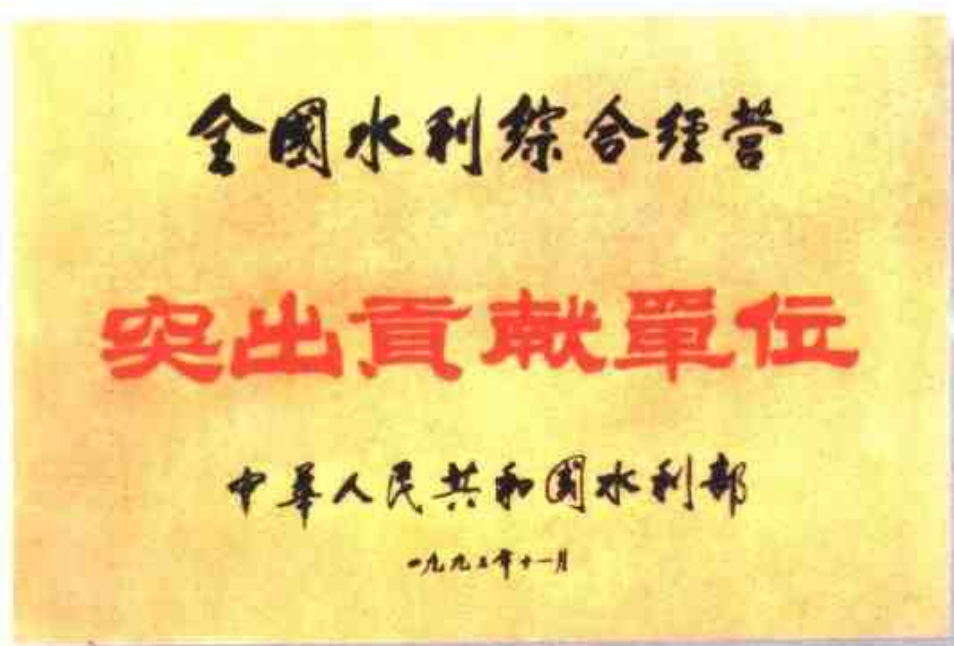 全國水利綜合經營
突出貢献單位
中華人民共和國水利部
一九九五年十一月